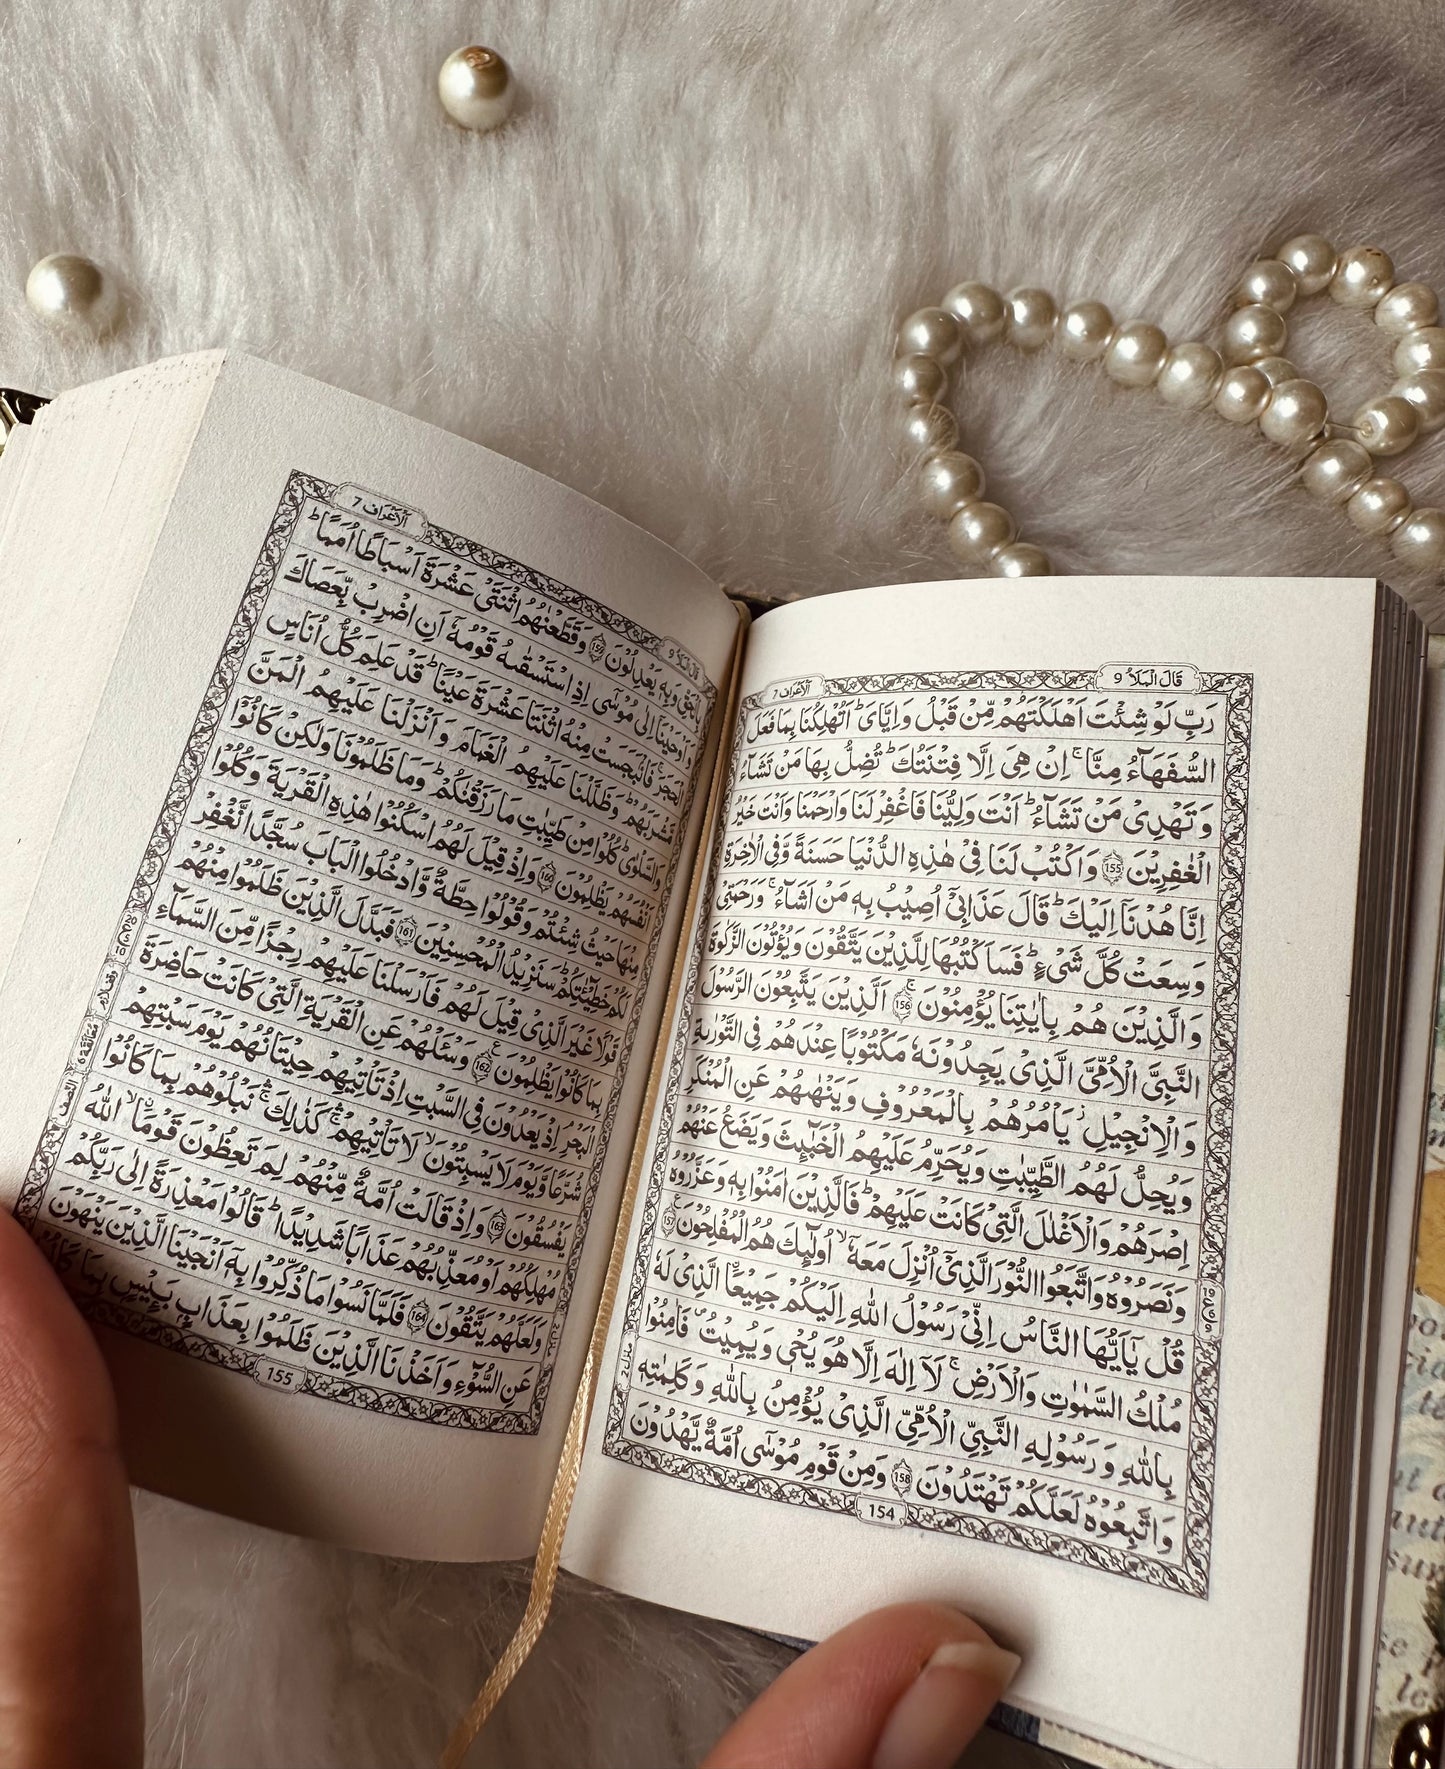 قَالَ الْمَلَاُ ٩
اَلْاَعْرَاف ٧
رَبِّ لَوْ شِئْتَ اَهْلَكْتَهُمْ مِّنْ قَبْلُ وَاِيَّايَ ؕ اَتُهْلِكُنَا بِمَا فَعَلَ
السُّفَهَآءُ مِنَّا ۚ اِنْ هِيَ اِلَّا فِتْنَتُكَ ؕ تُضِلُّ بِهَا مَنْ تَشَآءُ
وَتَهْدِيْ مَنْ تَشَآءُ ؕ اَنْتَ وَلِيُّنَا فَاغْفِرْ لَنَا وَارْحَمْنَا وَاَنْتَ خَيْرُ
الْغٰفِرِيْنَ 155 وَاكْتُبْ لَنَا فِيْ هٰذِهِ الدُّنْيَا حَسَنَةً وَّفِي الْاٰخِرَةِ
اِنَّا هُدْنَآ اِلَيْكَ ؕ قَالَ عَذَابِيْٓ اُصِيْبُ بِهٖ مَنْ اَشَآءُ ۚ وَرَحْمَتِيْ
وَسِعَتْ كُلَّ شَيْءٍ ؕ فَسَاَكْتُبُهَا لِلَّذِيْنَ يَتَّقُوْنَ وَيُؤْتُوْنَ الزَّكٰوةَ
وَالَّذِيْنَ هُمْ بِاٰيٰتِنَا يُؤْمِنُوْنَ ۚ 156 اَلَّذِيْنَ يَتَّبِعُوْنَ الرَّسُوْلَ
النَّبِيَّ الْاُمِّيَّ الَّذِيْ يَجِدُوْنَهٗ مَكْتُوْبًا عِنْدَهُمْ فِي التَّوْرٰىةِ
وَالْاِنْجِيْلِ ؗ يَاْمُرُهُمْ بِالْمَعْرُوْفِ وَيَنْهٰىهُمْ عَنِ الْمُنْكَرِ
وَيُحِلُّ لَهُمُ الطَّيِّبٰتِ وَيُحَرِّمُ عَلَيْهِمُ الْخَبٰٓئِثَ وَيَضَعُ عَنْهُمْ
اِصْرَهُمْ وَالْاَغْلٰلَ الَّتِيْ كَانَتْ عَلَيْهِمْ ؕ فَالَّذِيْنَ اٰمَنُوْا بِهٖ وَعَزَّرُوْهُ
وَنَصَرُوْهُ وَاتَّبَعُوا النُّوْرَ الَّذِيْٓ اُنْزِلَ مَعَهٗٓ ۙ اُولٰٓئِكَ هُمُ الْمُفْلِحُوْنَ 157
قُلْ يٰٓاَيُّهَا النَّاسُ اِنِّيْ رَسُوْلُ اللّٰهِ اِلَيْكُمْ جَمِيْعًا الَّذِيْ لَهٗ
مُلْكُ السَّمٰوٰتِ وَالْاَرْضِ ۚ لَآ اِلٰهَ اِلَّا هُوَ يُحْيٖ وَيُمِيْتُ ۪ فَاٰمِنُوْا
بِاللّٰهِ وَرَسُوْلِهِ النَّبِيِّ الْاُمِّيِّ الَّذِيْ يُؤْمِنُ بِاللّٰهِ وَكَلِمٰتِهٖ
وَاتَّبِعُوْهُ لَعَلَّكُمْ تَهْتَدُوْنَ 158 وَمِنْ قَوْمِ مُوْسٰٓى اُمَّةٌ يَّهْدُوْنَ
154
منزل 2
قَالَ الْمَلَاُ ٩
اَلْاَعْرَاف ٧
بِالْحَقِّ وَبِهٖ يَعْدِلُوْنَ 159 وَقَطَّعْنٰهُمُ اثْنَتَيْ عَشْرَةَ اَسْبَاطًا اُمَمًا ؕ
وَاَوْحَيْنَآ اِلٰى مُوْسٰٓى اِذِ اسْتَسْقٰىهُ قَوْمُهٗٓ اَنِ اضْرِبْ بِّعَصَاكَ
الْحَجَرَ ۚ فَانْۢبَجَسَتْ مِنْهُ اثْنَتَا عَشْرَةَ عَيْنًا ؕ قَدْ عَلِمَ كُلُّ اُنَاسٍ
مَّشْرَبَهُمْ ؕ وَظَلَّلْنَا عَلَيْهِمُ الْغَمَامَ وَاَنْزَلْنَا عَلَيْهِمُ الْمَنَّ
وَالسَّلْوٰى ؕ كُلُوْا مِنْ طَيِّبٰتِ مَا رَزَقْنٰكُمْ ؕ وَمَا ظَلَمُوْنَا وَلٰكِنْ كَانُوْٓا
اَنْفُسَهُمْ يَظْلِمُوْنَ 160 وَاِذْ قِيْلَ لَهُمُ اسْكُنُوْا هٰذِهِ الْقَرْيَةَ وَكُلُوْا
مِنْهَا حَيْثُ شِئْتُمْ وَقُوْلُوْا حِطَّةٌ وَّادْخُلُوا الْبَابَ سُجَّدًا نَّغْفِرْ
لَكُمْ خَطِيْٓـٰٔتِكُمْ ؕ سَنَزِيْدُ الْمُحْسِنِيْنَ 161 فَبَدَّلَ الَّذِيْنَ ظَلَمُوْا مِنْهُمْ
قَوْلًا غَيْرَ الَّذِيْ قِيْلَ لَهُمْ فَاَرْسَلْنَا عَلَيْهِمْ رِجْزًا مِّنَ السَّمَآءِ
بِمَا كَانُوْا يَظْلِمُوْنَ 162 وَسْـَٔلْهُمْ عَنِ الْقَرْيَةِ الَّتِيْ كَانَتْ حَاضِرَةَ
الْبَحْرِ ۘ اِذْ يَعْدُوْنَ فِي السَّبْتِ اِذْ تَاْتِيْهِمْ حِيْتَانُهُمْ يَوْمَ سَبْتِهِمْ
شُرَّعًا وَّيَوْمَ لَا يَسْبِتُوْنَ ۙ لَا تَاْتِيْهِمْ ۛۚ كَذٰلِكَ ۛۚ نَبْلُوْهُمْ بِمَا كَانُوْا
يَفْسُقُوْنَ 163 وَاِذْ قَالَتْ اُمَّةٌ مِّنْهُمْ لِمَ تَعِظُوْنَ قَوْمَا ۙ اللّٰهُ
مُهْلِكُهُمْ اَوْ مُعَذِّبُهُمْ عَذَابًا شَدِيْدًا ؕ قَالُوْا مَعْذِرَةً اِلٰى رَبِّكُمْ
وَلَعَلَّهُمْ يَتَّقُوْنَ 164 فَلَمَّا نَسُوْا مَا ذُكِّرُوْا بِهٖٓ اَنْجَيْنَا الَّذِيْنَ يَنْهَوْنَ
عَنِ السُّوْٓءِ وَاَخَذْنَا الَّذِيْنَ ظَلَمُوْا بِعَذَابٍۭ بَـِٔيْسٍۭ بِمَا كَانُوْا
155